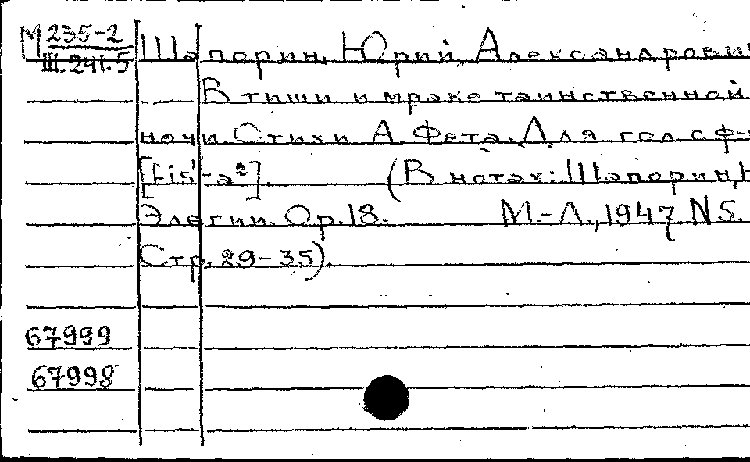 М 235-2
III.241.5
Шапорин, Юрий Александрови
В тиши и мраке таинственной
ночи. Стихи А. Фета. Для гол. с ф-
[fis¹-a²]. (В нотах: Шапорин,
Элегии. Ор. 18. М.-Л., 1947 N 5.
Стр. 29-35).
67999
67998